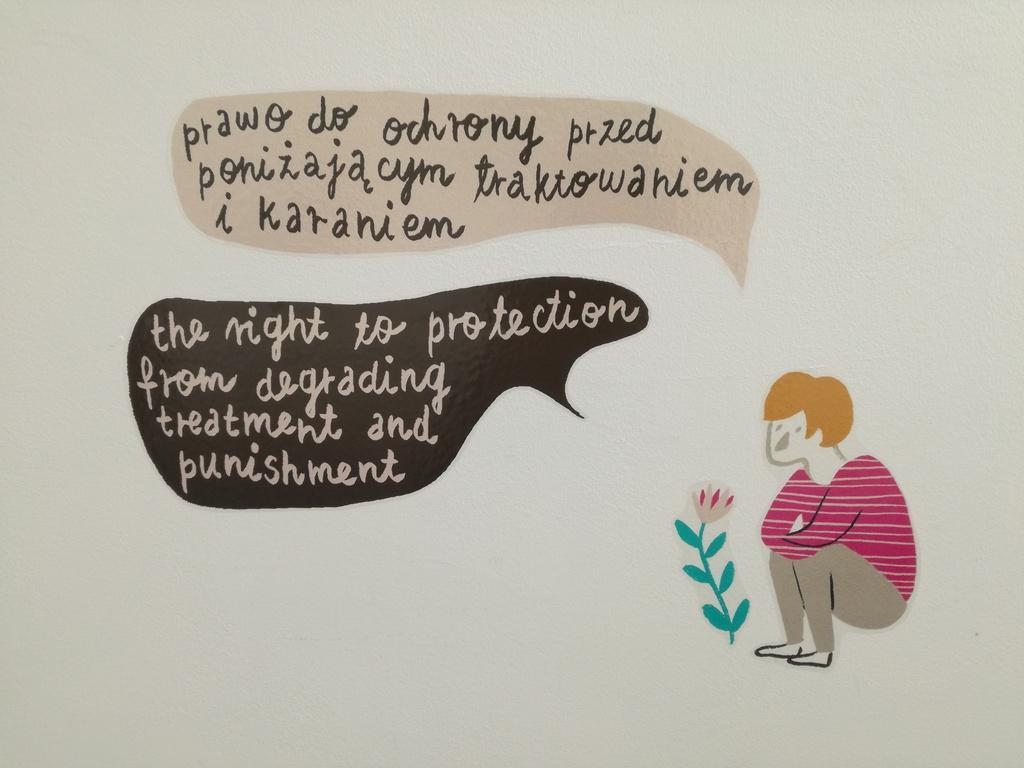 prawo do ochrony przed
poniżającym traktowaniem
i karaniem
the right to protection
from degrading
treatment and
punishment